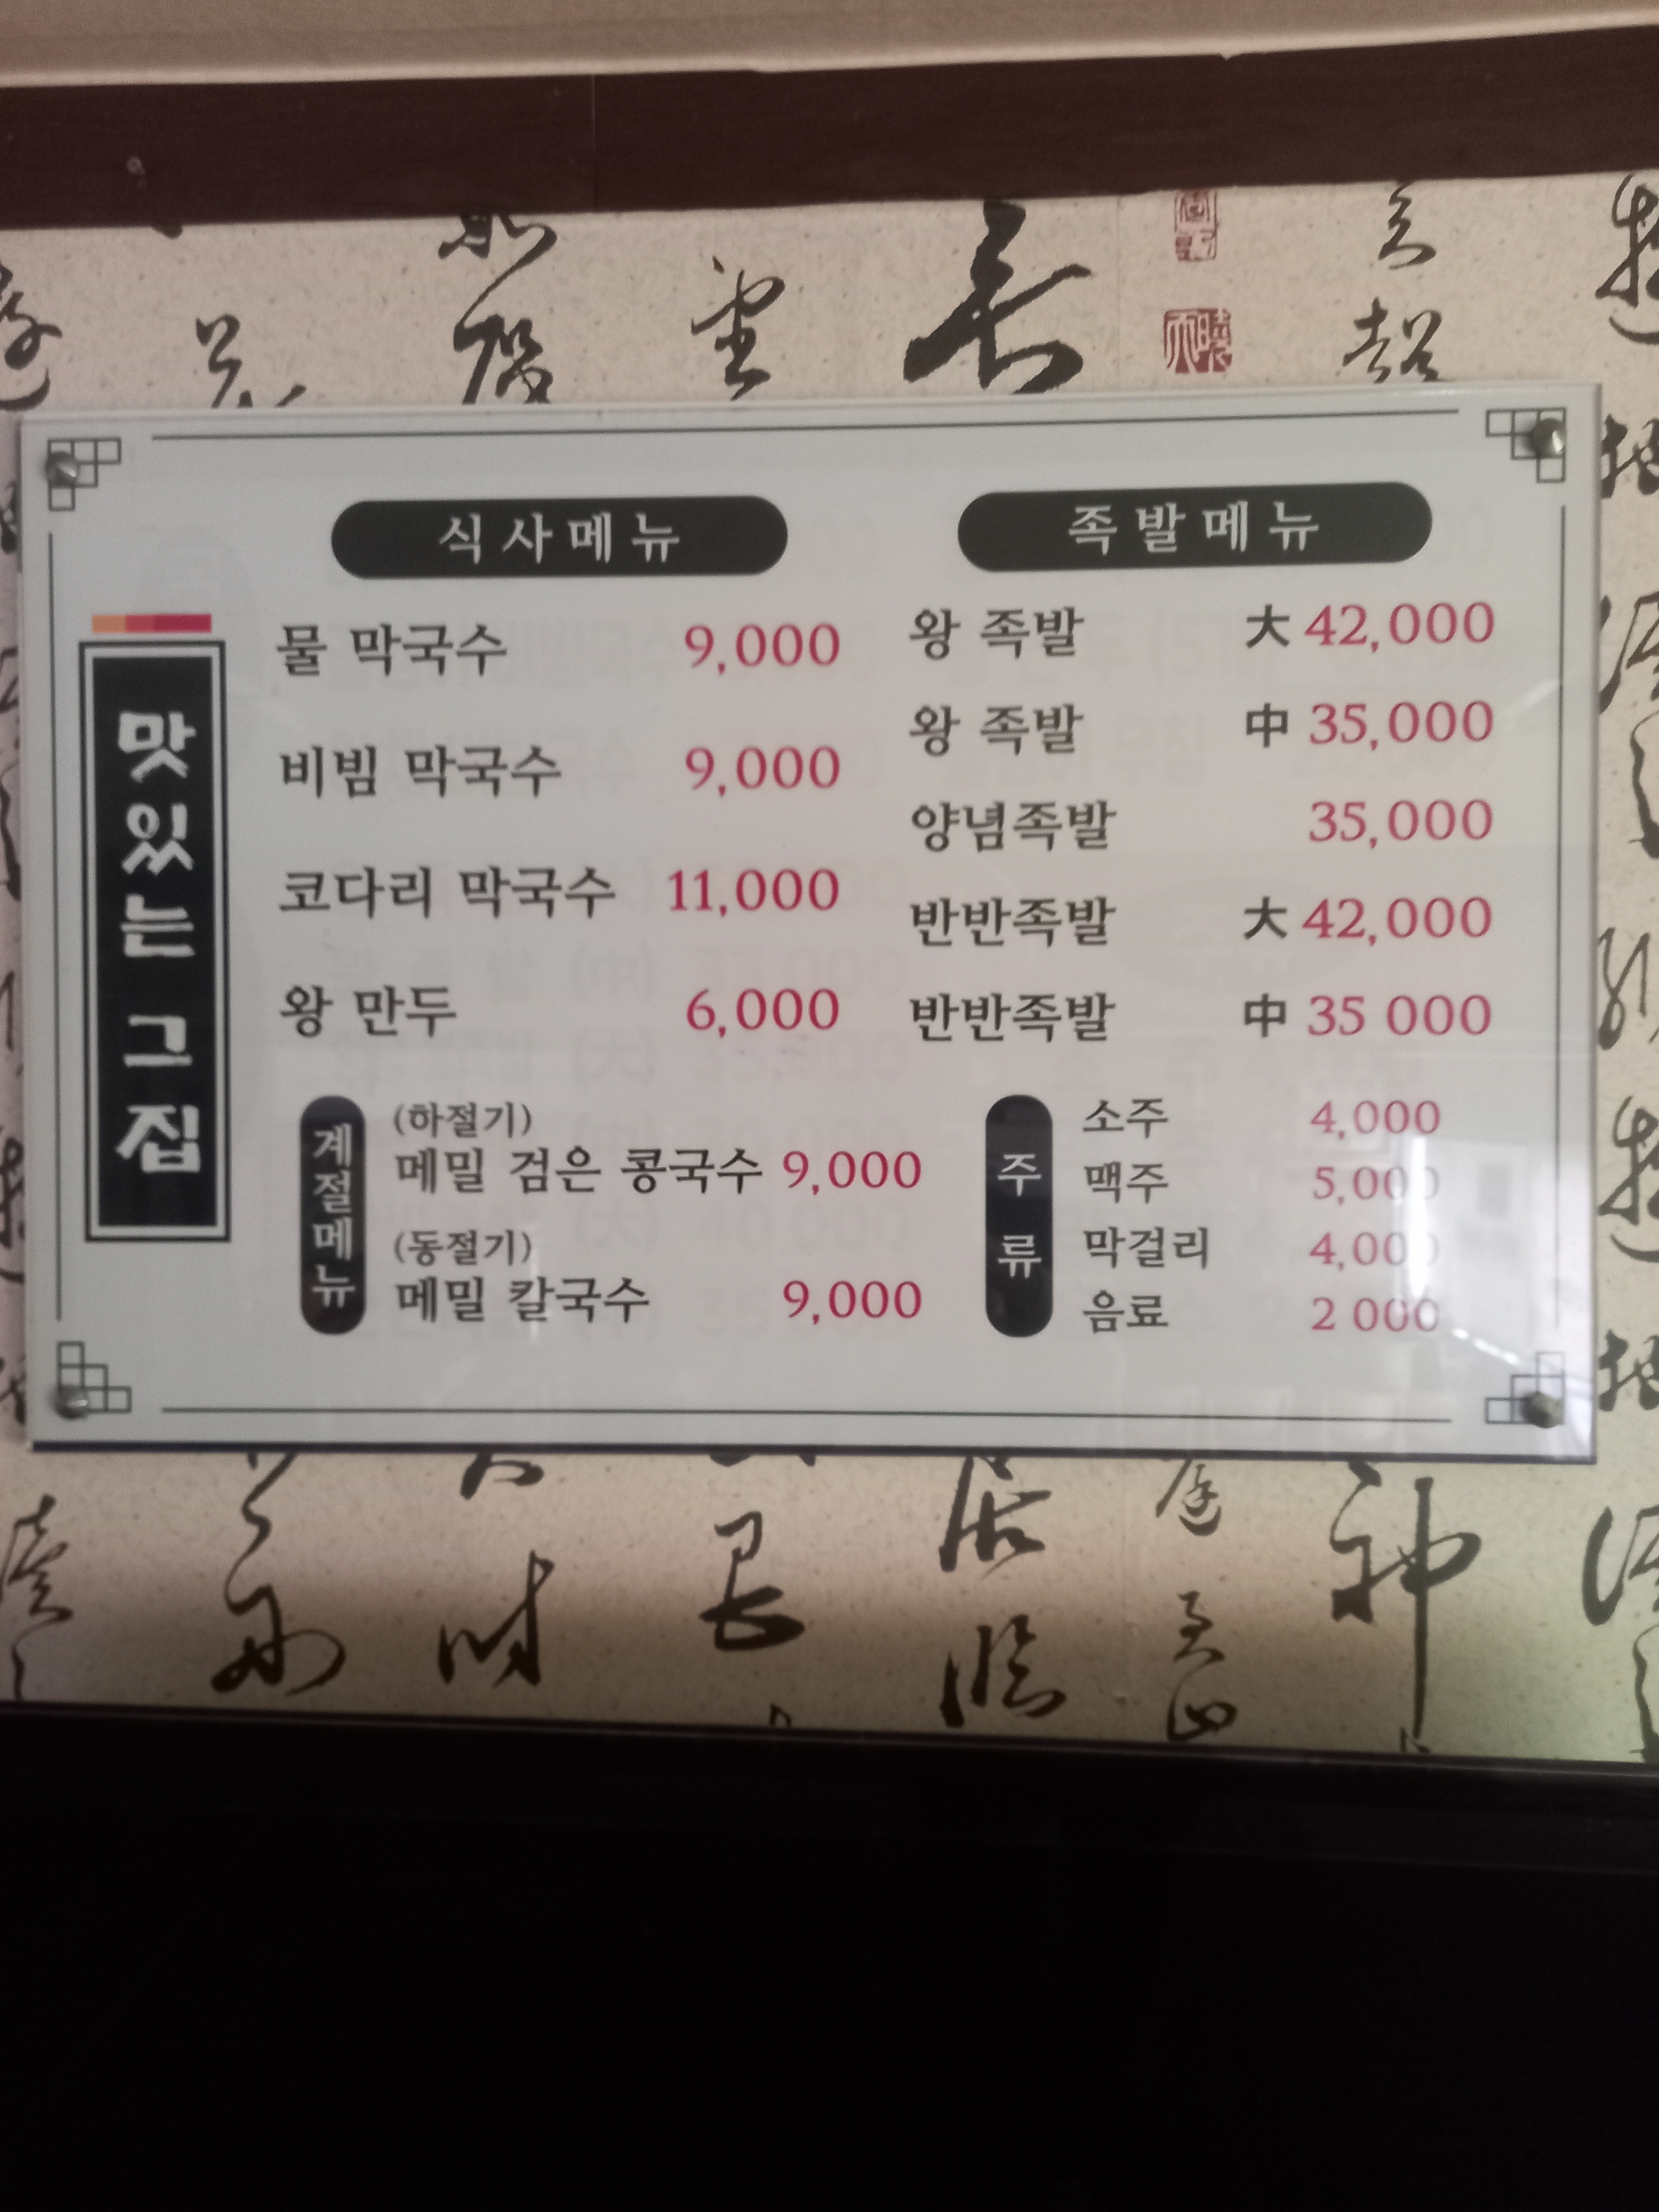 맛있는 그 집
식사메뉴
물 막국수 9,000
비빔 막국수 9,000
코다리 막국수 11,000
왕 만두 6,000
족발메뉴
왕 족발 大 42,000
왕 족발 中 35,000
양념족발 35,000
반반족발 大 42,000
반반족발 中 35 000
계절메뉴
(하절기)
메밀 검은 콩국수 9,000
(동절기)
메밀 칼국수 9,000
주류
소주 4,000
맥주 5,000
막걸리 4,000
음료 2 000